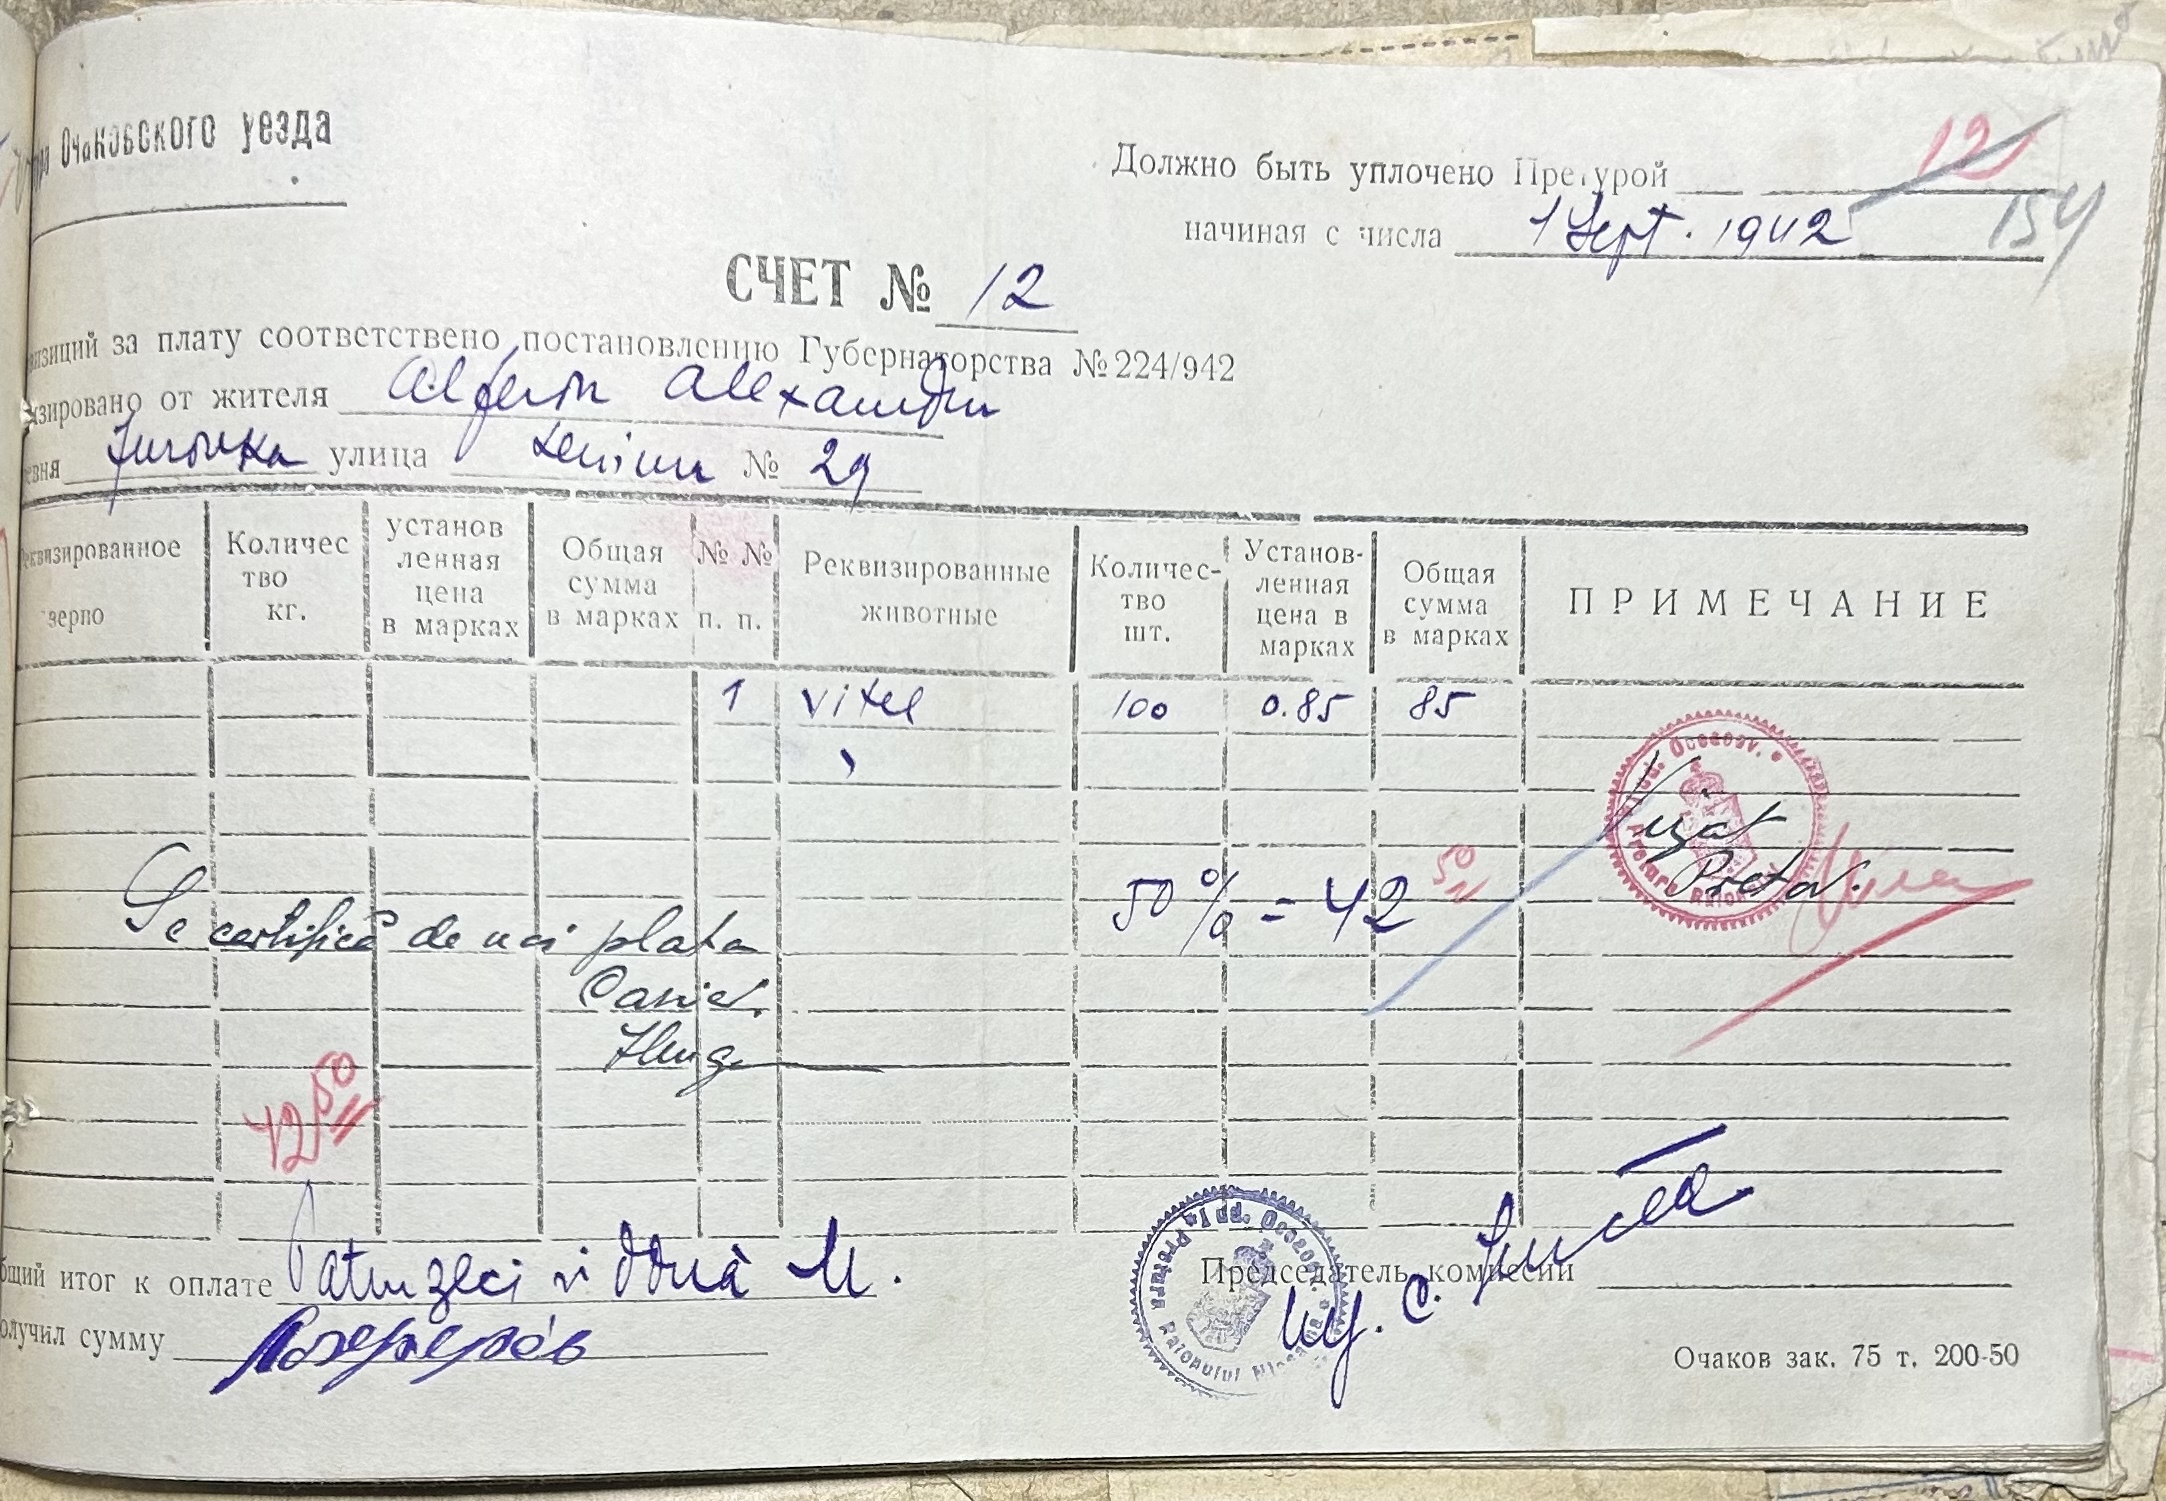 Очаковского уезда
Должно быть уплочено Претурой
12
начиная с числа 1 Sept. 1942
154
СЧЕТ № 12
визиций за плату соответствено постановлению Губернаторства № 224/942
изировано от жителя Alferon Alexandru
евня улица Lenina № 29
Реквизированное зерно
Количес тво кг.
установ ленная цена в марках
Общая сумма в марках
№ № п. п.
Реквизированные животные
Количес- тво шт.
Установ- ленная цена в марках
Общая сумма в марках
ПРИМЕЧАНИЕ
1 vitel 100 0.85 85
Vizat
Pretor.
50 % = 42 50
Se certifică de noi plata
Casier
42 50
бщий итог к оплате Patruzeci si două M.
олучил сумму
Председатель комиссии
Очаков зак. 75 т. 200-50